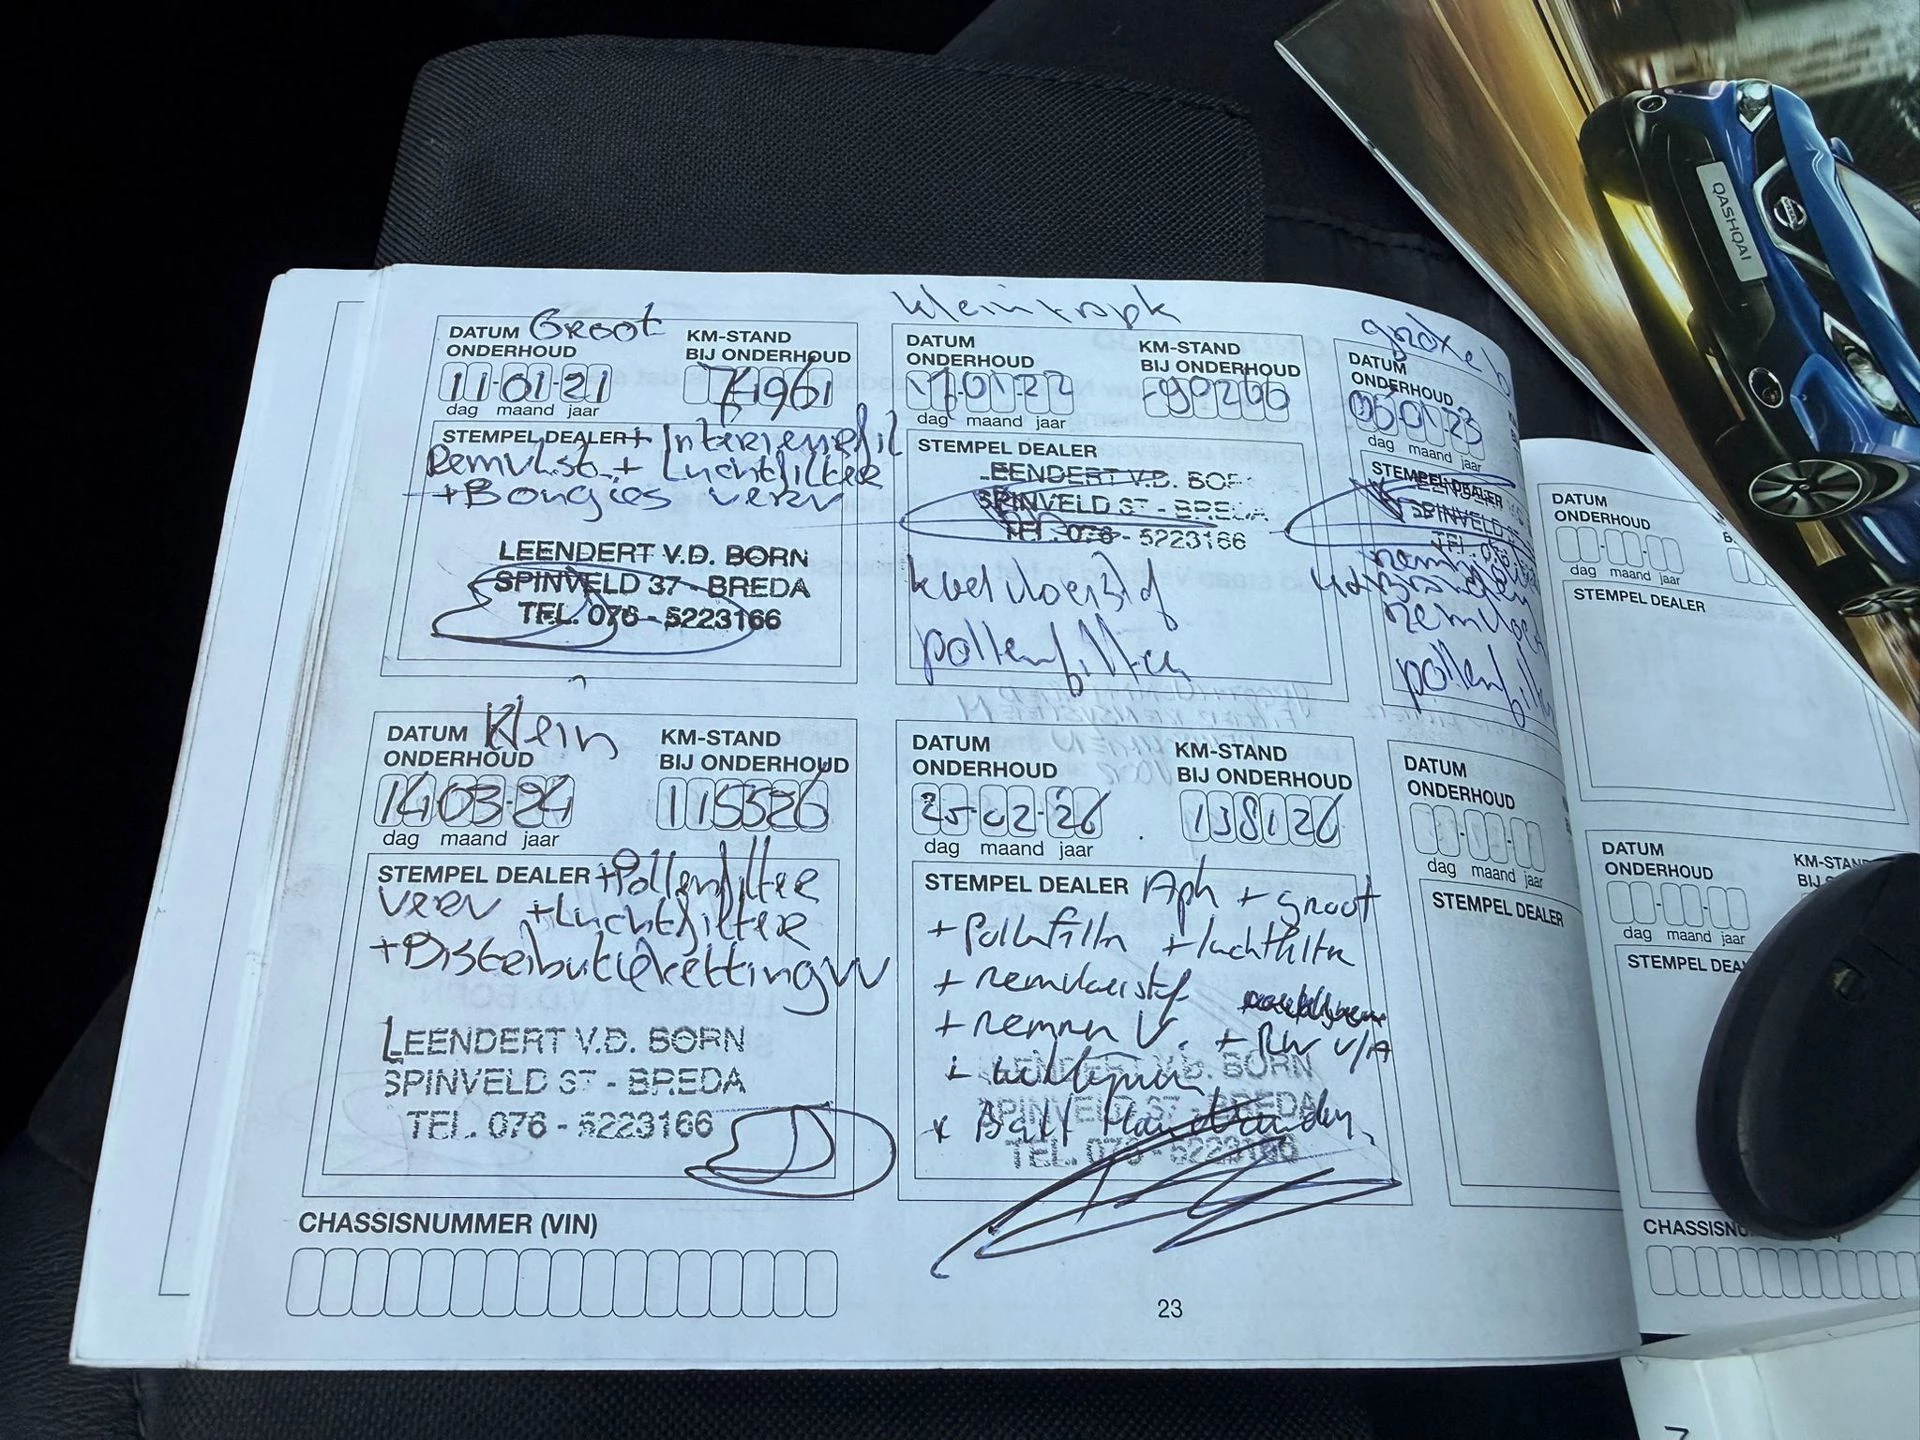 Groot
DATUM
ONDERHOUD
KM-STAND
BIJ ONDERHOUD
11-01-21
dag maand jaar
STEMPEL DEALER
Remvlst. + Luchtfilter
+ Bougies verv
LEENDERT V.D. BORN
SPINVELD 37 - BREDA
TEL. 076 - 5223166
klein
DATUM
ONDERHOUD
KM-STAND
BIJ ONDERHOUD
17-01-22
90266
dag maand jaar
STEMPEL DEALER
LEENDERT V.D. BOR
SPINVELD 37 - BREDA
TEL. 076 - 5223166
koelvloeistof
pollenfilter
DATUM
ONDERHOUD
01-23
dag maand jaar
STEMPEL DEALER
SPINVELD
TEL. 076
pollenfilter
Klein
DATUM
ONDERHOUD
KM-STAND
BIJ ONDERHOUD
14-03-24
115526
dag maand jaar
STEMPEL DEALER +Pollenfilter
verv +Luchtfilter
+Distributieketting vv
LEENDERT V.D. BORN
SPINVELD 37 - BREDA
TEL. 076 - 5223166
DATUM
ONDERHOUD
KM-STAND
BIJ ONDERHOUD
25-02-26
138126
dag maand jaar
STEMPEL DEALER Apk + groot
+ Pollenfiltr + luchtfiltr
+ remvloeistof
+ remmen V. + RW V/A
LEENDERT V.D. BORN
SPINVELD 37 - BREDA
TEL. 076 - 5223166
DATUM
ONDERHOUD
dag maand jaar
STEMPEL DEALER
CHASSISNUMMER (VIN)
23
DATUM
ONDERHOUD
dag maand jaar
STEMPEL DEALER
DATUM
ONDERHOUD
KM-STAN
BIJ
dag maand jaar
STEMPEL DEA
CHASSISN
QASHQAI
7